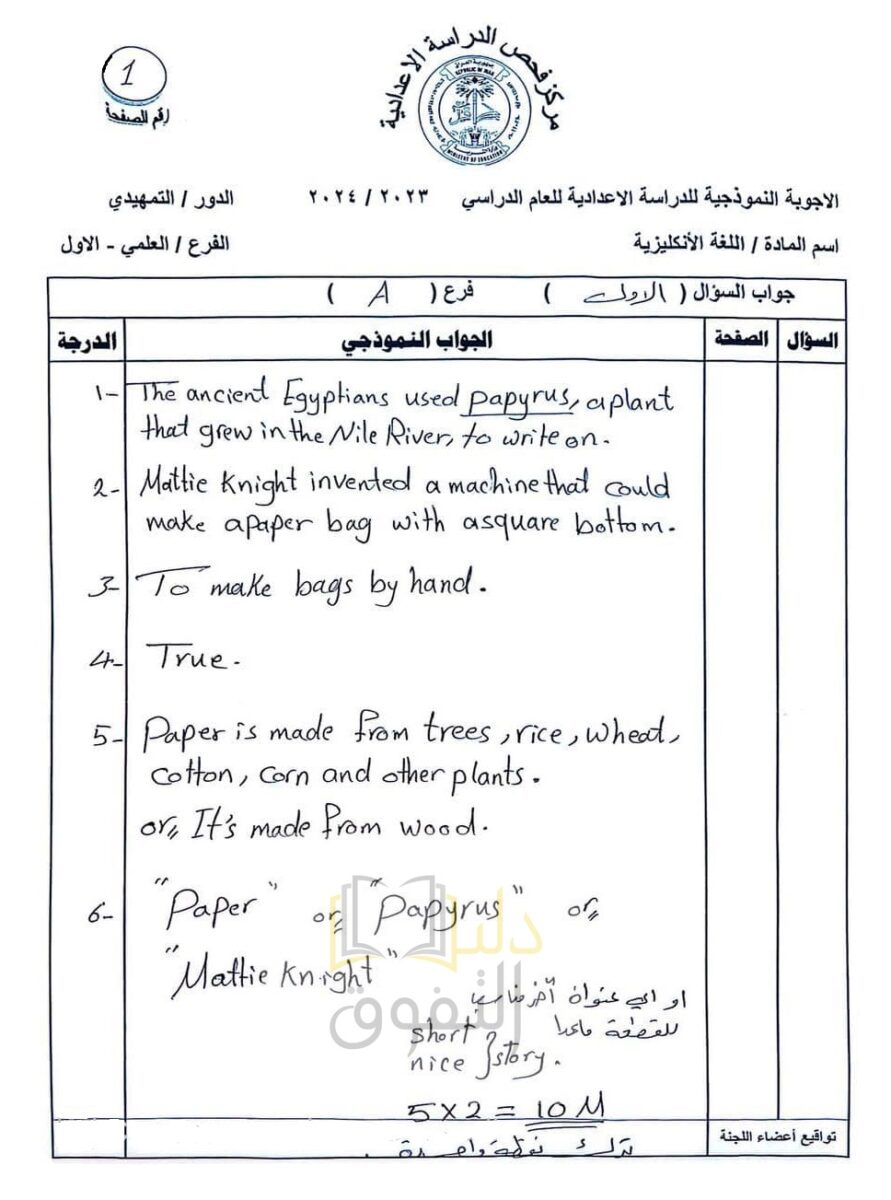 1
رقم الصفحة
مركز فحص الدراسة الاعدادية
REPUBLIC OF IRAQ
MINISTRY OF EDUCATION
الاجوبة النموذجية للدراسة الاعدادية للعام الدراسي ٢٠٢٣ / ٢٠٢٤ الدور / التمهيدي
اسم المادة / اللغة الأنكليزية الفرع / العلمي - الاول
جواب السؤال ( الاول ) فرع ( A )
السؤال الصفحة الجواب النموذجي الدرجة
1- The ancient Egyptians used papyrus, a plant
that grew in the Nile River, to write on.
2- Mattie Knight invented a machine that could
make a paper bag with a square bottom.
3- To make bags by hand.
4- True.
5- Paper is made from trees, rice, wheat,
cotton, corn and other plants.
or, It's made from wood.
6- "Paper" or, "Papyrus" or,
"Mattie Knight"
دليل
التفوق
او اي عنوان آخر مناسب
للقطعة ماعدا
short
nice } story.
5 x 2 = 10 M
تواقيع أعضاء اللجنة
بترك نقطة واحدة .